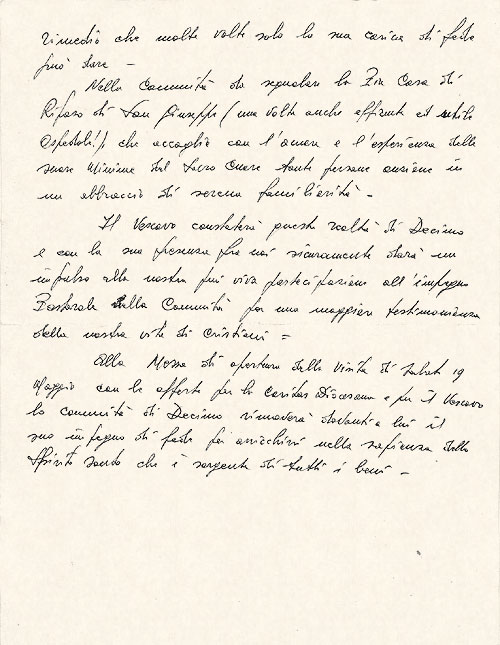 rimedio che molte volte solo la sua carica di fede
può dare –
Nella Comunità da segnalare la Pia Casa di
Riposo di San Giuseppe (una volta anche
Ospedale!) che accoglie con l'amore e l'esperienza delle
suore Minime del Sacro Cuore tante persone anziane in
un abbraccio di serena familiarità –
Il Vescovo constaterà questa realtà di Decimo
e con la sua presenza fra noi sicuramente darà un
impulso alla nostra più viva partecipazione all'impegno
Pastorale della Comunità per una maggiore testimonianza
della nostra vita di Cristiani =
Alla Messa di apertura della Visita di sabato 19
Maggio con le offerte per la Caritas Diocesana e per il Vescovo
la comunità di Decimo rinnoverà davanti a lui il
suo impegno di fede per arricchirsi nella sapienza dello
Spirito Santo che è sorgente di tutti i beni –